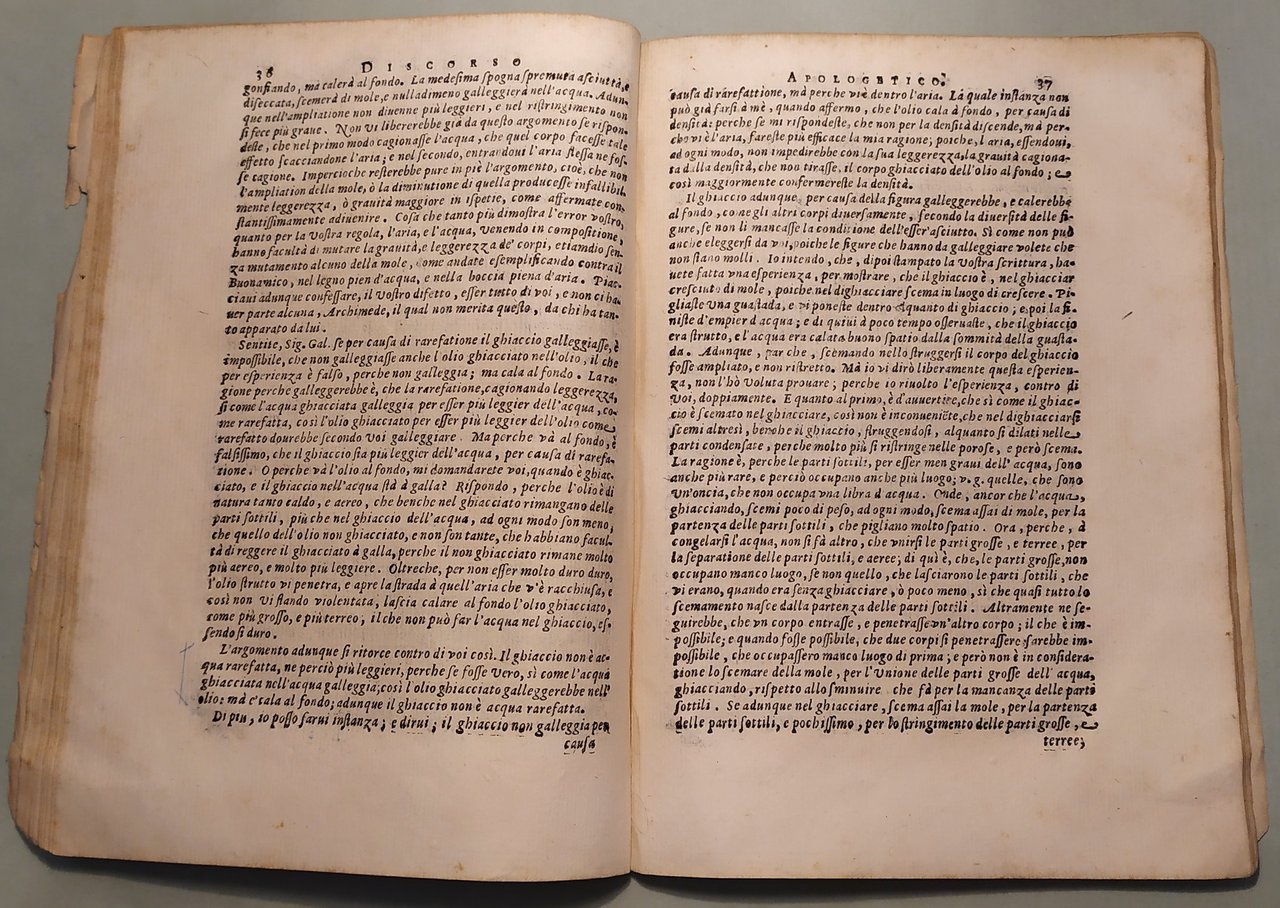 36 DISCORSO
gonfiando, ma calerà al fondo. La medesima spogna spremuta asciutta, e
diseccata, scemerà di mole, e nulladimeno galleggierà nell'acqua. Adun-
que nell'ampliatione non diuenne più leggieri, e nel ristringimento non
si fece più graue. Non vi libererebbe già da questo argomento se rispon-
deste, che nel primo modo cagionasse l'acqua, che quel corpo facesse tale
effetto scacciandone l'aria; e nel secondo, entrandoui l'aria stessa ne fos-
se cagione. Impercioche resterebbe pure in piè l'argomento, cioè, che non
l'ampliation della mole, ò la diminutione di quella producesse infallibil-
mente leggerezza, ò grauità maggiore in ispetie, come affermate con-
stantissimamente adiuenire. Cosa che tanto più dimostra l'error vostro,
quanto per la vostra regola, l'aria, e l'acqua, venendo in compositione,
hanno facultà di mutare la grauità, e leggerezza de' corpi, etiamdio sen-
za mutamento alcuno della mole, come andate esemplificando contra il
Buonamico, nel legno pien d'acqua, e nella boccia piena d'aria. Piac-
ciaui adunque confessare, il vostro difetto, esser tutto di voi, e non ci ha-
uer parte alcuna, Archimede, il qual non merita questo, da chi ha tan-
to apparato da lui.
Sentite, Sig. Gal. se per causa di rarefatione il ghiaccio galleggiasse, è
impossibile, che non galleggiasse anche l'olio ghiacciato nell'olio, il che
per esperienza è falso, perche non galleggia; ma cala al fondo. La ra-
gione perche galleggerebbe è, che la rarefatione, cagionando leggerezza,
si come l'acqua ghiacciata galleggia per esser più leggier dell'acqua, co-
me rarefatta, così l'olio ghiacciato per esser più leggier dell'olio come
rarefatto dourebbe secondo voi galleggiare. Ma perche và al fondo, è
falsissimo, che il ghiaccio sia più leggier dell'acqua, per causa di rarefa-
tione. O perche và l'olio al fondo, mi domandarete voi, quando è ghiac-
ciato, e il ghiaccio nell'acqua stà à galla? Rispondo, perche l'olio è di
natura tanto caldo, e aereo, che benche nel ghiacciato rimangano delle
parti sottili, più che nel ghiaccio dell'acqua, ad ogni modo son meno,
che quello dell'olio non ghiacciato, e non son tante, che habbiano facul-
tà di reggere il ghiacciato à galla, perche il non ghiacciato rimane molto
più aereo, e molto più leggiere. Oltreche, per non esser molto duro duro,
l'olio strutto vi penetra, e apre la strada à quell'aria che v'è racchiusa, e
così non vi stando violentata, lascia calare al fondo l'olio ghiacciato,
come più grosso, e più terreo; il che non può far l'acqua nel ghiaccio, es-
sendo sì duro.
L'argomento adunque si ritorce contro di voi così. Il ghiaccio non è ac-
qua rarefatta, ne perciò più leggieri, perche se fosse vero, sì come l'acqua
ghiacciata nell'acqua galleggia; così l'olio ghiacciato galleggerebbe nell'
olio: mà e' cala al fondo; adunque il ghiaccio non è acqua rarefatta.
Di piu, io posso farui instanza; e dirui; il ghiaccio non galleggia per
causa
APOLOGETICO. 37
causa di rarefattione, mà perche v'è dentro l'aria. La quale instanza non
può già farsi à mè, quando affermo, che l'olio cala à fondo, per causa di
densità: perche se mi rispondeste, che non per la densità discende, mà per-
che vi è l'aria, fareste più efficace la mia ragione; poiche, l'aria, essendoui,
ad ogni modo, non impedirebbe con la sua leggerezza, la grauità cagiona-
ta dalla densità, che non tirasse, il corpo ghiacciato dell'olio al fondo; e
così maggiormente confermereste la densità.
Il ghiaccio adunque, per causa della figura galleggerebbe, e calerebbe
al fondo, come gli altri corpi diuersamente, secondo la diuersità delle fi-
gure, se non li mancasse la conditione dell'esser'asciutto. Sì come non può
anche eleggersi da voi, poiche le figure che hanno da galleggiare volete che
non siano molli. Io intendo, che, dipoi stampato la vostra scrittura, ha-
uete fatta vna esperienza, per mostrare, che il ghiaccio è, nel ghiacciar
cresciuto di mole, poiche nel dighiacciare scema in luogo di crescere. Pi-
gliaste vna guastada, e vi poneste dentro alquanto di ghiaccio; e poi la fi-
niste d'empier d'acqua; e di quiui à poco tempo osseruaste, che il ghiaccio
era strutto, e l'acqua era calata buono spatio dalla sommità della guasta-
da. Adunque, par che, scemando nello struggersi il corpo del ghiaccio
fosse ampliato, e non ristretto. Mà io vi dirò liberamente questa esperien-
za, non l'hò voluta prouare; perche io riuolto l'esperienza, contro di
voi, doppiamente. E quanto al primo, è d'auuertire, che sì come il ghiac-
cio è scemato nel ghiacciare, così non è inconueniẽte, che nel dighiacciarsi
scemi altresì, benche il ghiaccio, struggendosi, alquanto si dilati nelle
parti condensate, perche molto più si ristringe nelle porose, e però scema.
La ragione è, perche le parti sottili, per esser men graui dell'acqua, sono
anche più rare, e perciò occupano anche più luogo; v.g. quelle, che sono
vn'oncia, che non occupa vna libra d'acqua. Onde, ancor che l'acqua,
ghiacciando, scemi poco di peso, ad ogni modo, scema assai di mole, per la
partenza delle parti sottili, che pigliano molto spatio. Ora, perche, à
congelarsi l'acqua, non si fà altro, che vnirsi le parti grosse, e terree, per
la separatione delle parti sottili, e aeree; di quì è, che, le parti grosse, non
occupano manco luogo, se non quello, che lasciarono le parti sottili, che
vi erano, quando era senza ghiacciare, ò poco meno, sì che quasi tutto lo
scemamento nasce dalla partenza delle parti sottili. Altramente ne se-
guirebbe, che vn corpo entrasse, e penetrasse vn'altro corpo; il che è im-
possibile; e quando fosse possibile, che due corpi si penetrassero; sarebbe im-
possibile, che occupassero manco luogo di prima; e però non è in considera-
tione lo scemare della mole, per l'Vnione delle parti grosse dell'acqua,
ghiacciando, rispetto allo sminuire che fà per la mancanza delle parti
sottili. Se adunque nel ghiacciare, scema assai la mole, per la partenza
delle parti sottili, e pochissimo, per lo stringimento delle parti grosse, e
terree;